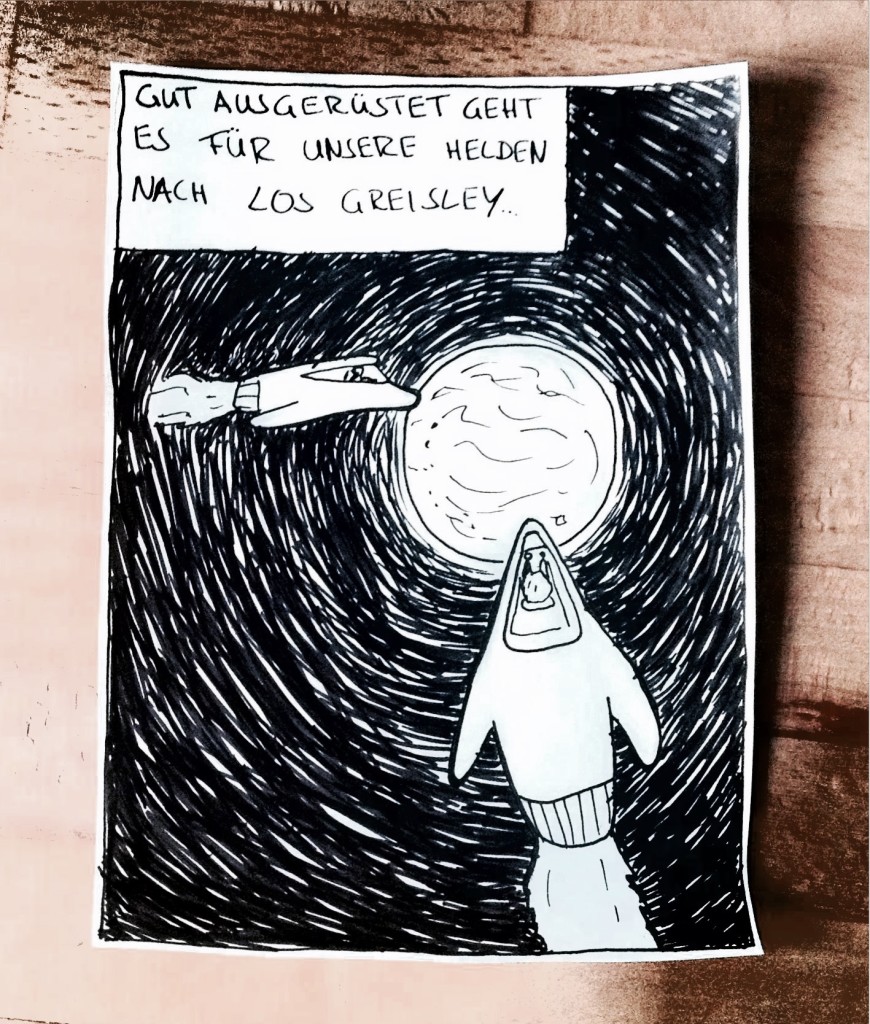 GUT AUSGERÜSTET GEHT
ES FÜR UNSERE HELDEN
NACH LOS GREISLEY...